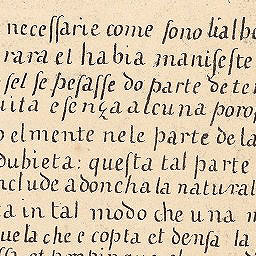 necessarie come sono li alb
rara et habia manifeste
sel se pesasse do parte de te
uita e senza alcuna poro
elmente nele parte de la
dubieta: questa tal parte
nclude adoncha la natural
a in tal modo che una
uela che e copta et densa la